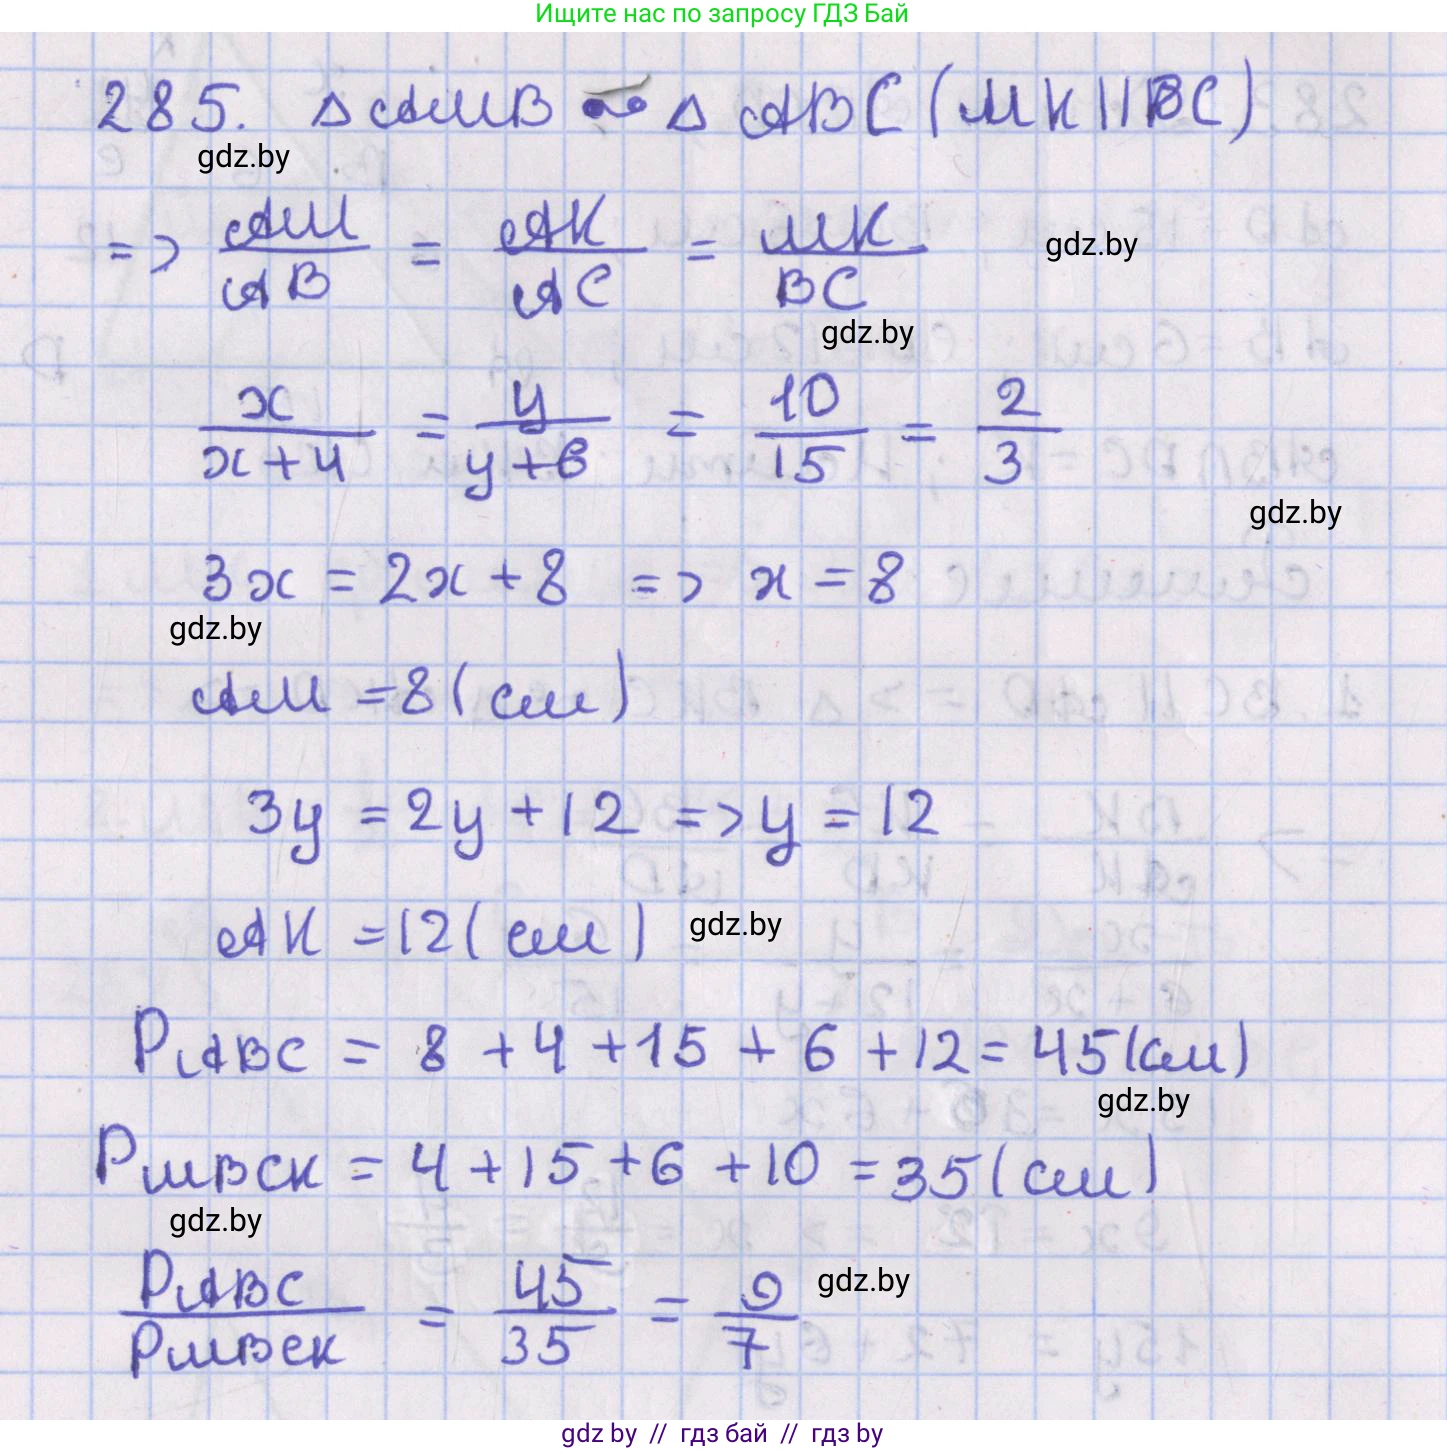 Ищите нас по запросу ГДЗ Бай
285. △ AMB ∾ △ ABC (MK||BC)
gdz.by
=> AM/AB = AK/AC = MK/BC
gdz.by
gdz.by
x/(x+4) = y/(y+6) = 10/15 = 2/3
gdz.by
3x = 2x + 8 => x = 8
gdz.by
AM = 8 (см)
3y = 2y + 12 => y = 12
AK = 12 (см)
gdz.by
PABC = 8 + 4 + 15 + 6 + 12 = 45 (см)
gdz.by
PMBCK = 4 + 15 + 6 + 10 = 35 (см)
gdz.by
PABC/PMBCK = 45/35 = 9/7
gdz.by
gdz.by // гдз бай // гдз by